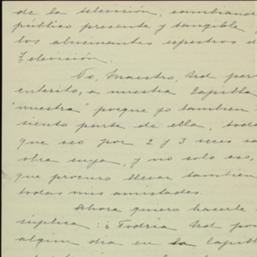 de la televisión, cambiando
público presente y tangible
los alucinantes espectros d
Televisión.
No, Maestro, Ud. per
enterito, a nuestra Capilla
"nuestra" porque yo tambien
siento parte de ella, toda
que sea por 2 y 3 veces sa
obra suya, y no solo eso,
que procuro llevar tambien
todas mis amistades.
Ahora quiero hacerle
súplica: ¿Podría Ud. por
algun dia en la Capilla